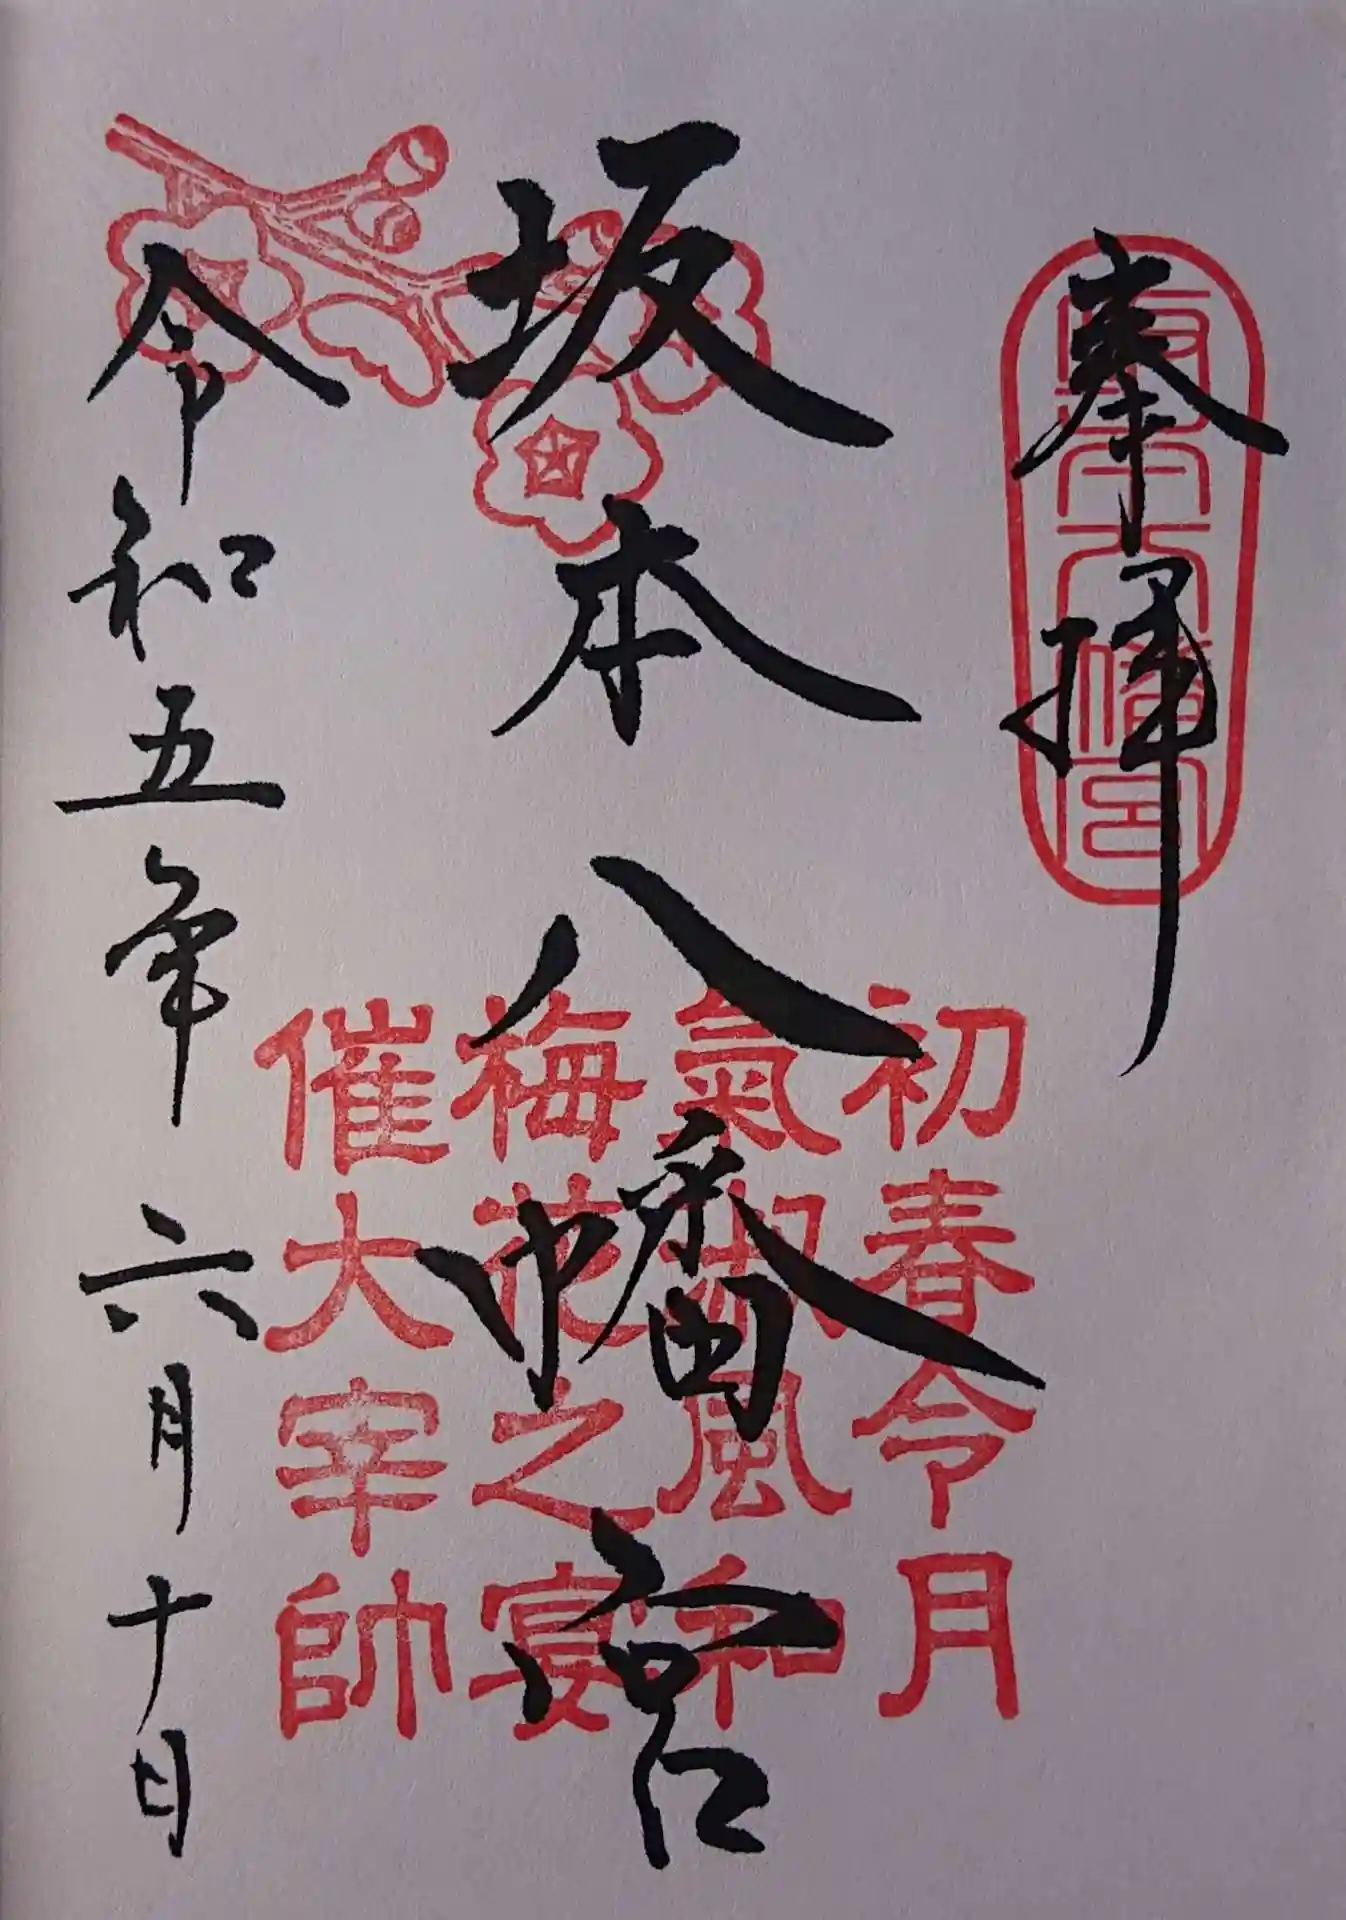 奉拝
坂本八幡宮
初春令月
氣淑風和
梅花之宴
催大宰帥
坂本八幡宮
令和五年六月十日